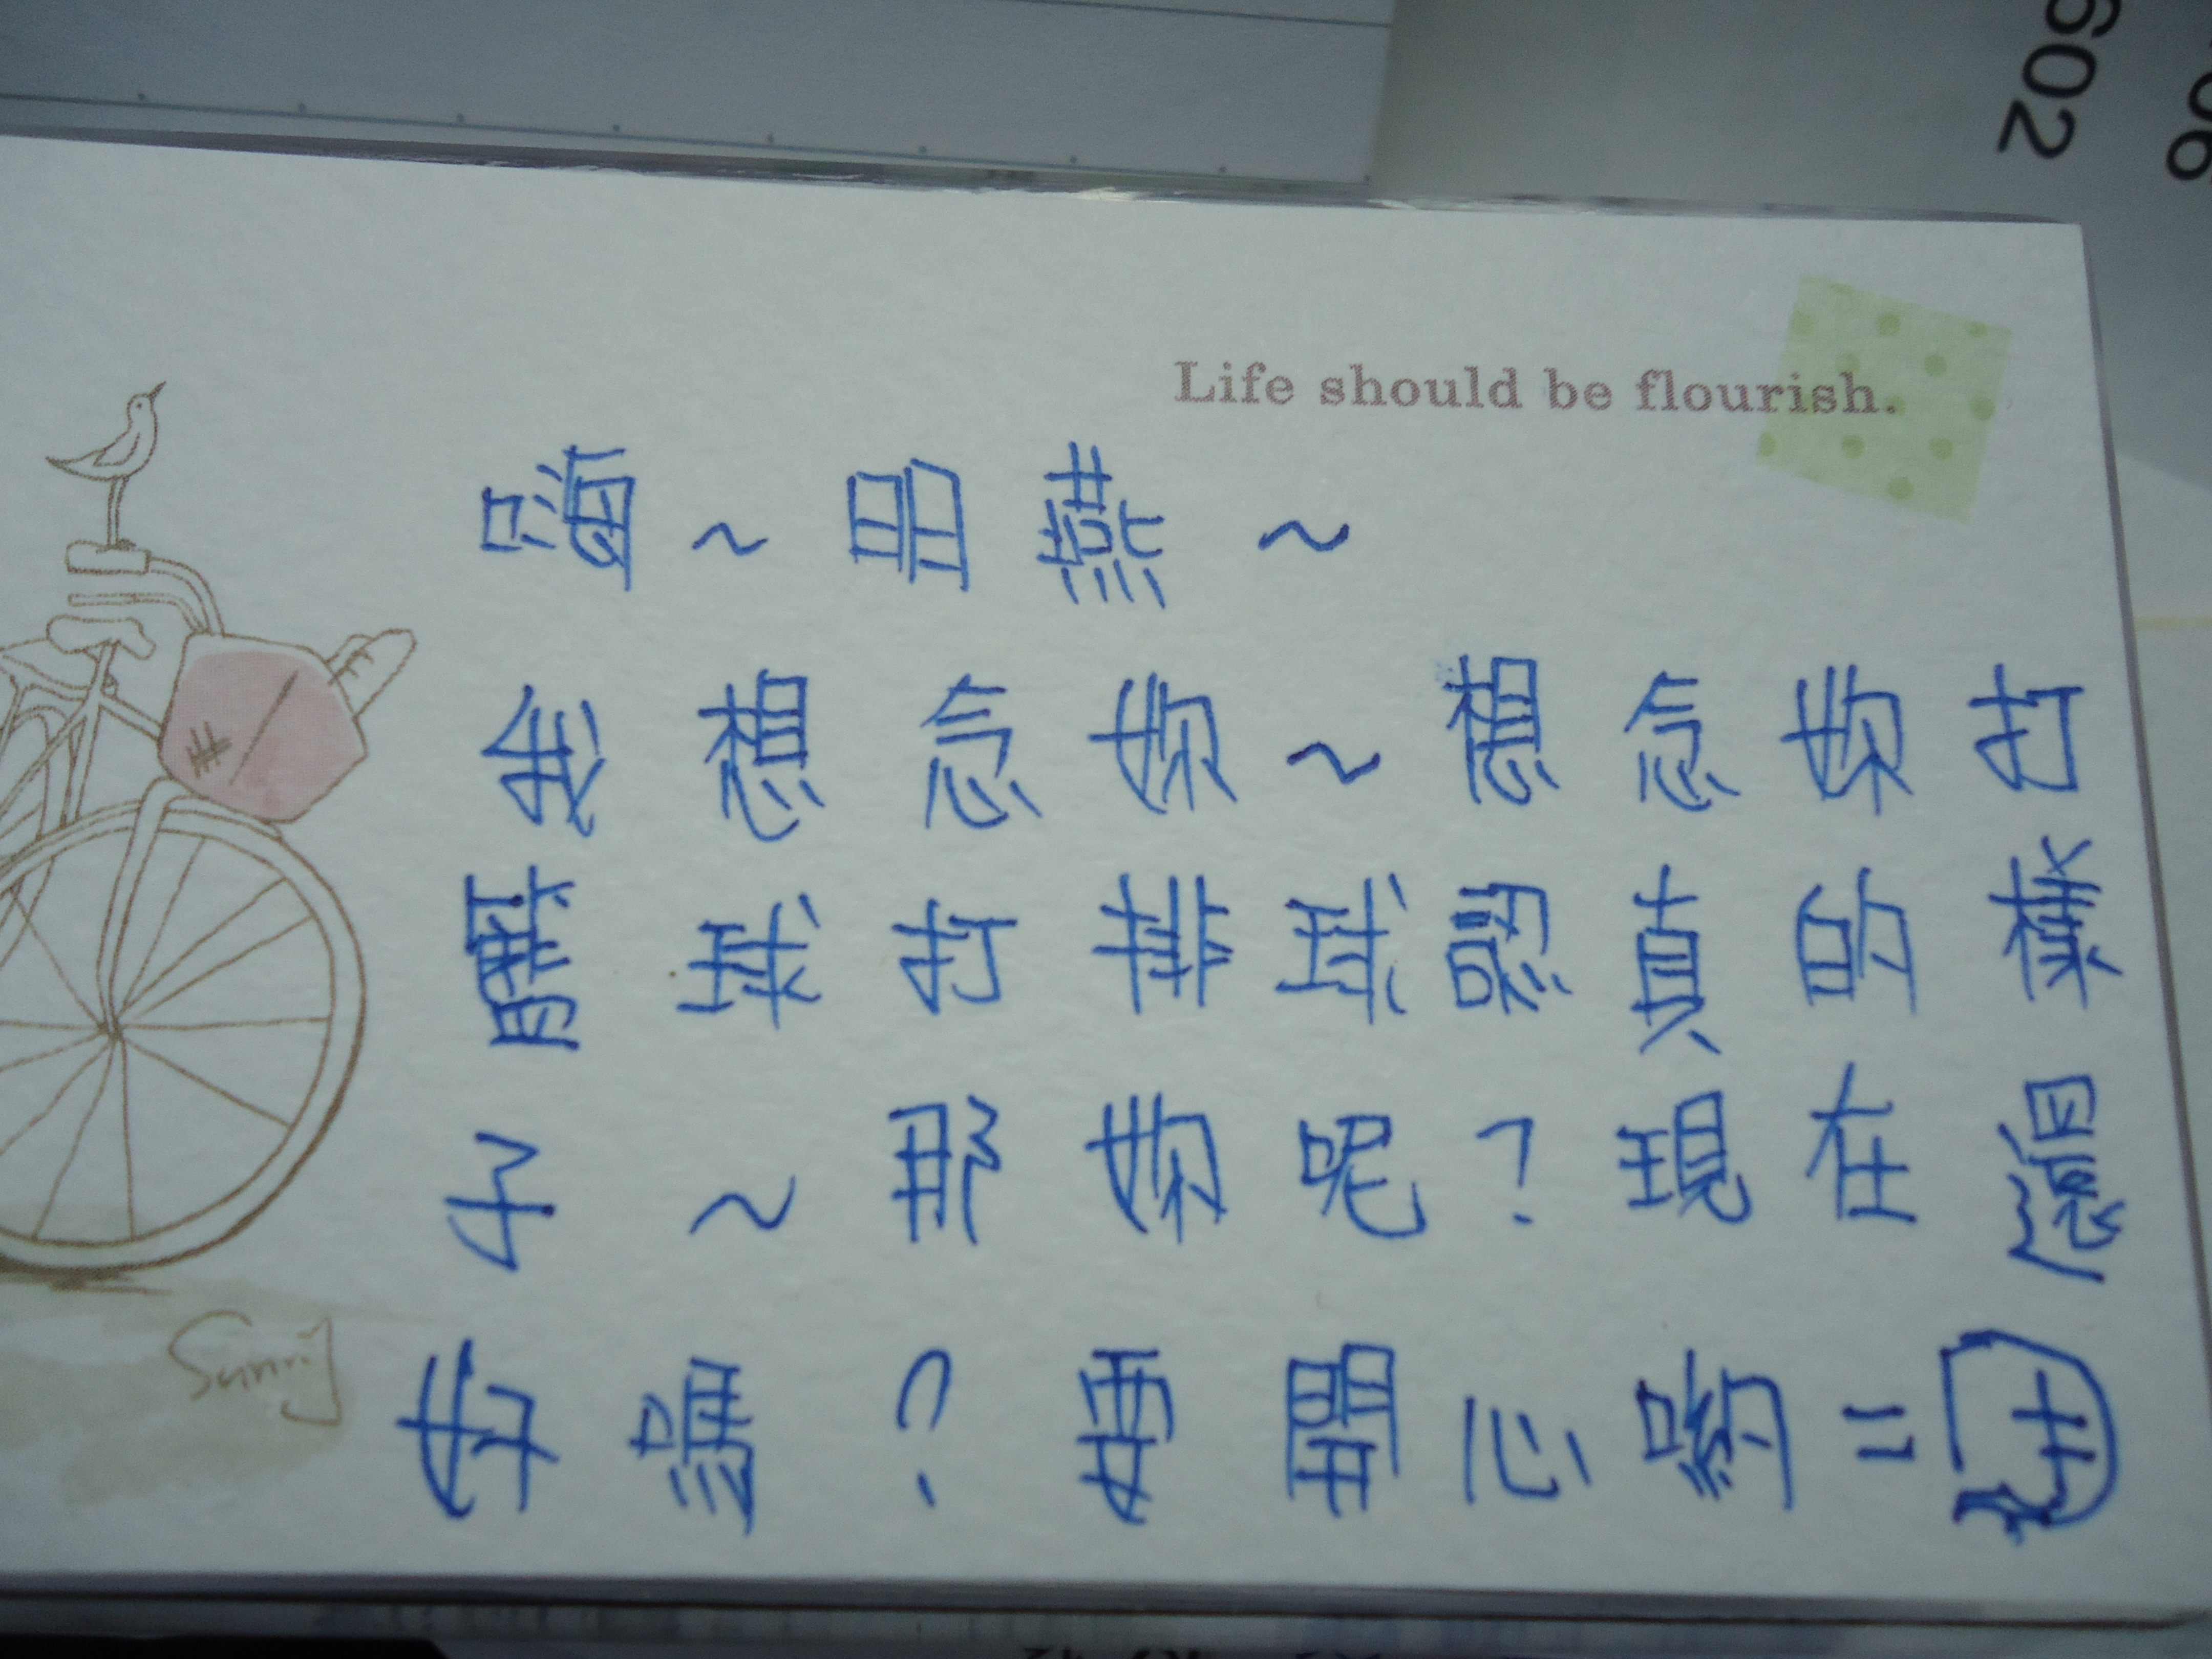 602
Life should be flourish.
嗨~明燕~
我想念妳~想念妳打
籃球打排球認真的樣
子~那妳呢?現在還
好嗎?要開心喲=